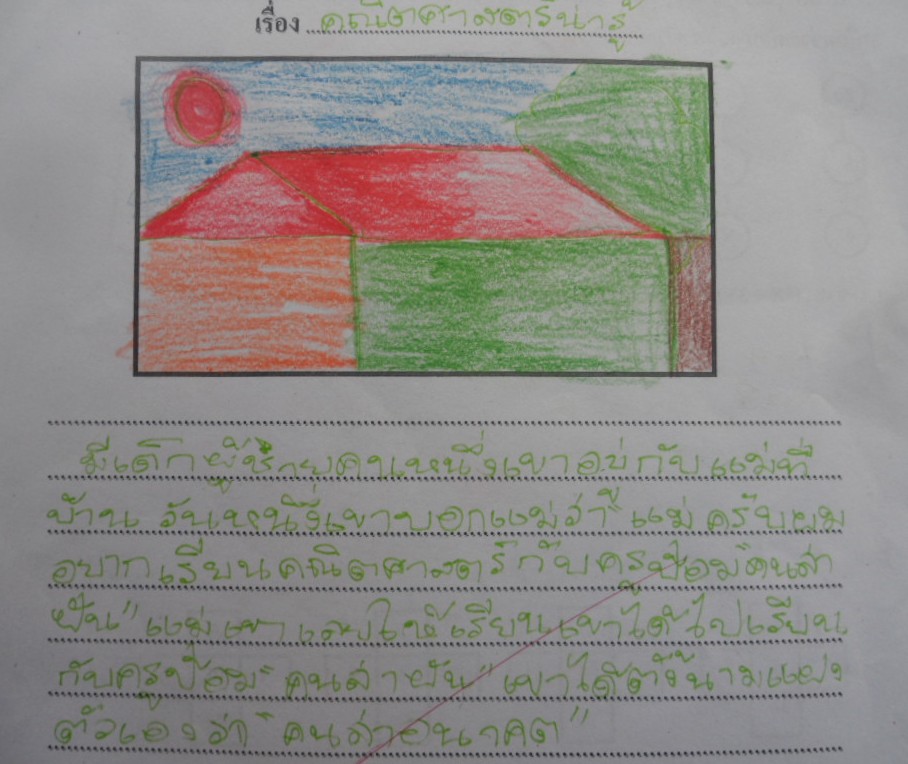 เรื่อง คณิตศาสตร์น่ารู้
มีเด็กผู้ชายคนหนึ่งเขาอยู่กับแม่ที่
บ้าน วันหนึ่งเขาบอกแม่ว่า "แม่ครับผม
อยากเรียนคณิตศาสตร์กับครูป้อมคนล่า
ฝัน" แม่เขาเลยให้เรียนเขาได้ไปเรียน
กับครูป้อม "คนล่าฝัน" เขาได้ตั้งนามแฝง
ตัวเองว่า "คนล่าอนาคต"